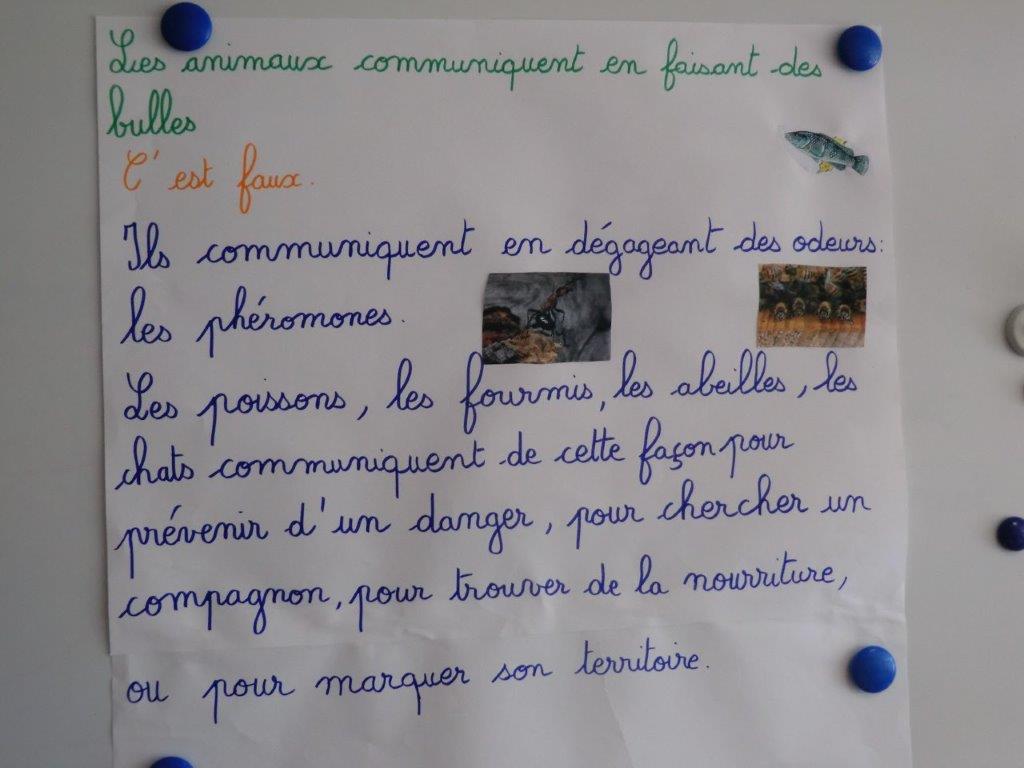 Les animaux communiquent en faisant des
bulles
C'est faux.
Ils communiquent en dégageant des odeurs:
les phéromones.
Les poissons, les fourmis, les abeilles, les
chats communiquent de cette façon pour
prévenir d'un danger, pour chercher un
compagnon, pour trouver de la nourriture,
ou pour marquer son territoire.